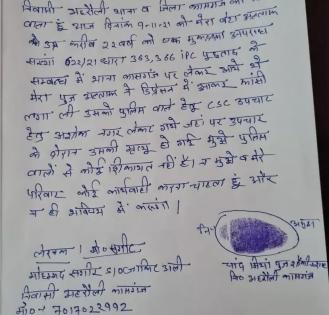 निवासी अहरौली थाना व जिला कासगंज का रहने
वाला हूँ आज दिनांक 9-11-21 को मेरा बेटा अल्ताफ
को उम्र करीब 22 वर्ष को एक मुकदमा अपराध
संख्या 622/21 धारा 363, 366 IPC पूछताछ के
सम्बन्ध में थाना कासगंज पर लेकर आये थे
मेरा पुत्र अल्ताफ ने डिप्रेशन में आकर फांसी
लगा ली उसको पुलिस वाले हेतु CSC उपचार
हेतु अशोक नगर लेकर गये जहां पर उपचार
के दौरान उसकी मृत्यु हो गई मुझे पुलिस
वालों से कोई शिकायत नहीं है। न मुझे व मेरे
परिवार कोई कार्यवाही करना चाहता हूं और
न ही भविष्य में करूंगा।
लेखक। मो० सगीर
मोहम्मद सगीर S/O जाकिर अली
निवासी अहरौली कासगंज
मो०नं० 7017023992
नि० अंगूठा
चांद मियां पुत्र
नि० अहरौली कासगंज